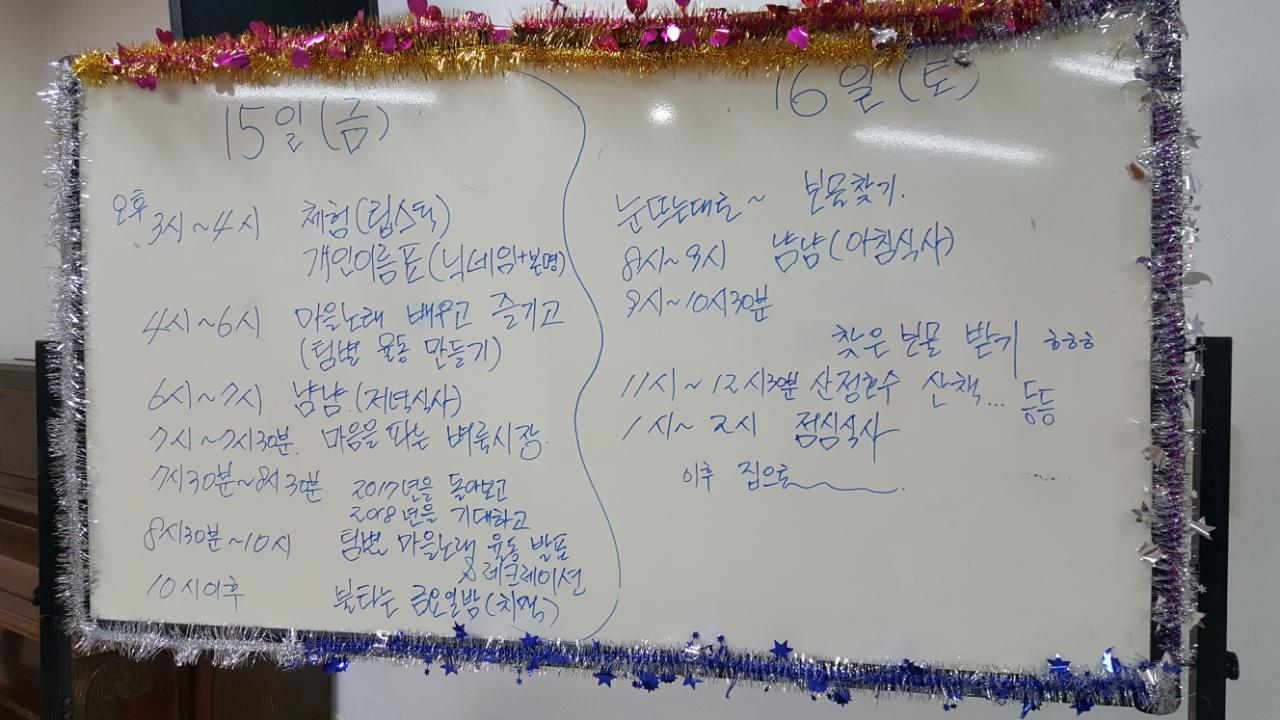 15일(금)
오후 3시~4시 체험(립스틱)
개인이름표(닉네임+본명)
4시~6시 마을노래 배우고 즐기고
(팀별 율동 만들기)
6시~7시 냠냠.(저녁식사)
7시~7시30분. 마음을 파는 벼룩시장.
7시30분~8시30분 2017년을 돌아보고
2018년을 기대하고
8시30분~10시 팀별 마을노래 율동 발표
& 레크레이션
10시이후 불타는 금요일밤(치맥)
16일(토)
눈뜨는대로~ 보물찾기.
8시~9시 냠냠(아침식사)
9시~10시30분
찾은 보물 받기 ㅎㅎㅎ
11시~12시30분 산정호수 산책... 등등
1시~2시 점심식사
이후 집으로